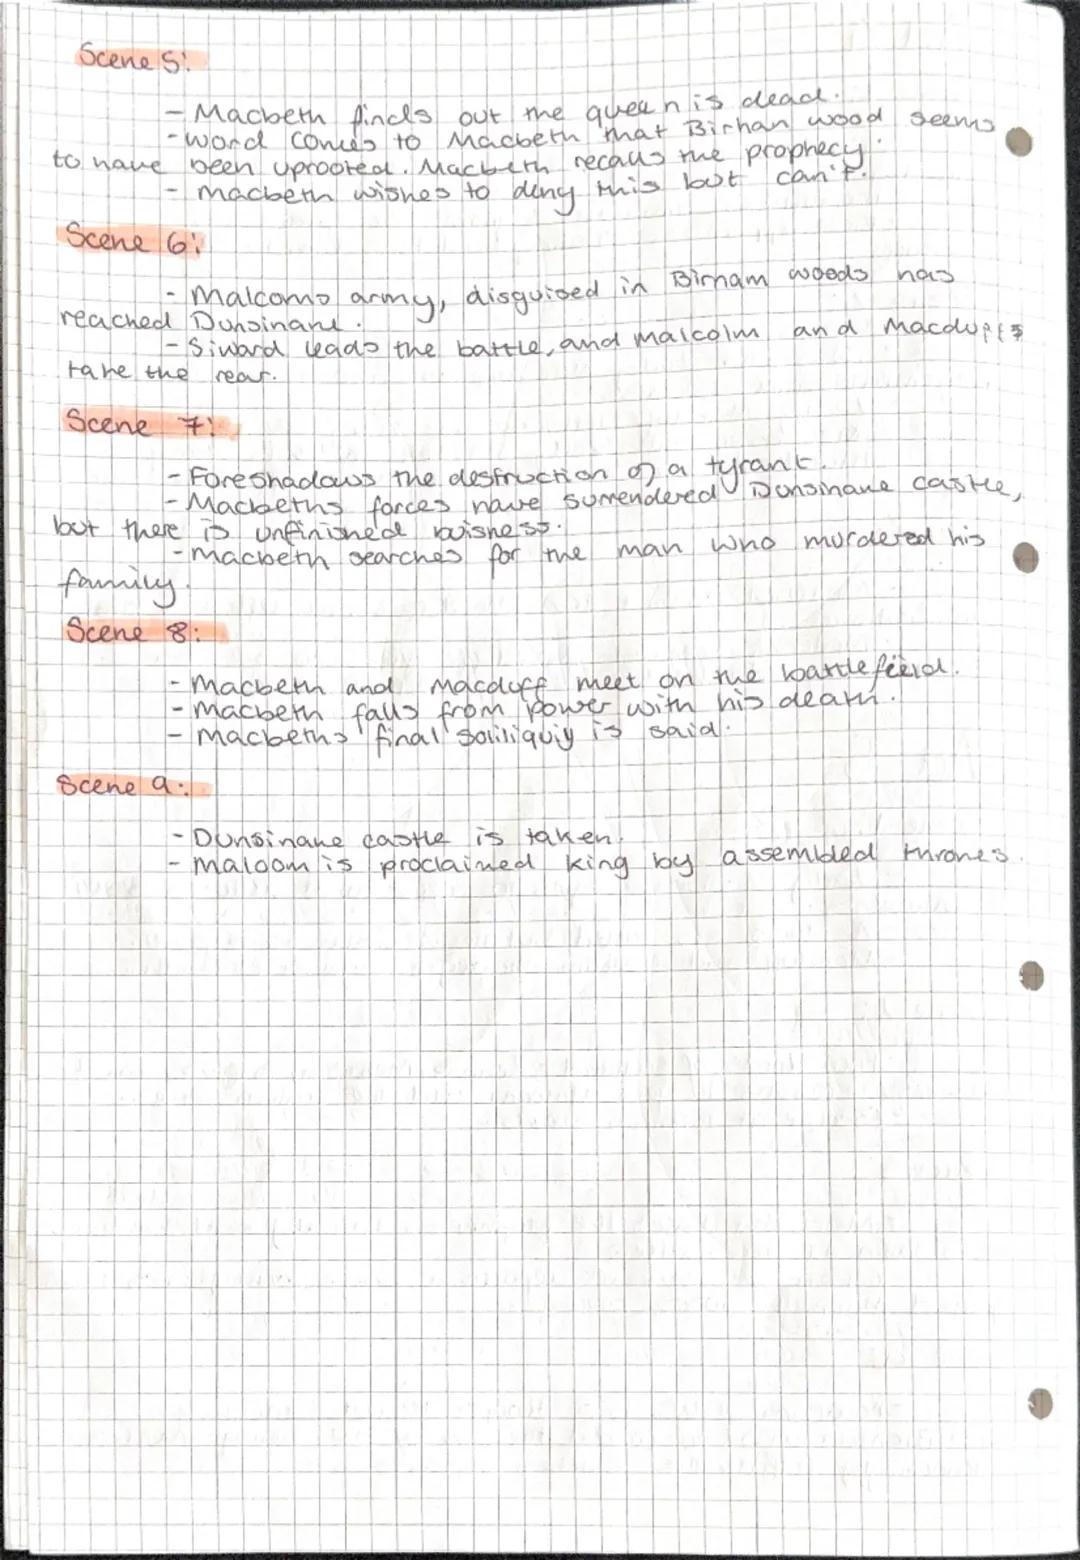 Scene 5:
- Macbeth finds out the queen is dead.
- word comes to Macbeth that Birhan wood seems
to have been uprooted. Macbeth recalls the prophecy.
- Macbeth wishes to deny this but can't.
Scene 6:
- Malcoms army, disguised in Birnam woods has
reached Dunsinane.
- Siward leads the battle, and malcolm and Macduffs
take the rear.
Scene 7:
- Foreshadows the destruction of a tyrant.
- Macbeths forces have surrendered Dunsinane castle,
but there is unfinished buisness.
- Macbeth searches for the man who murdered his
family.
Scene 8:
- Macbeth and Macduff meet on the battlefield.
- Macbeth falls from power with his death.
- Macbeths final soliliquiy is said.
Scene 9:
- Dunsinane castle is taken.
- Malcom is proclaimed king by assembled thrones.